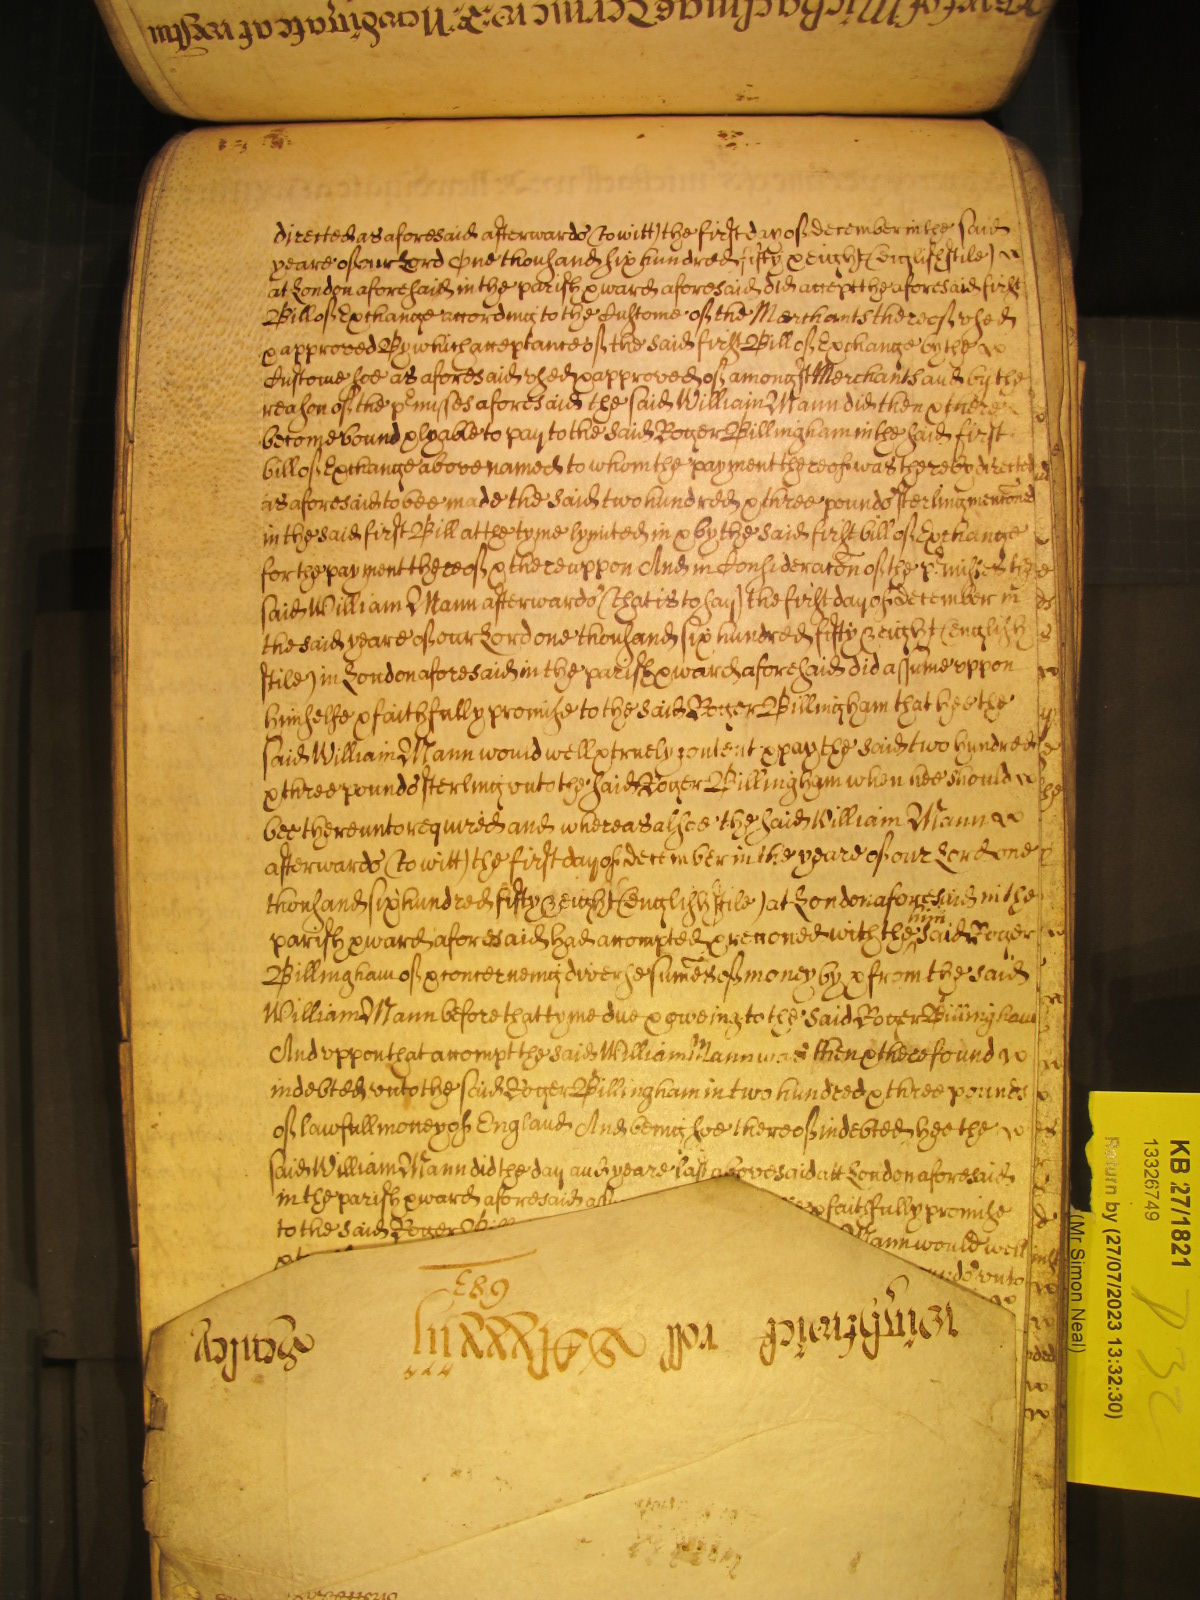 directed as aforesaid afterwards (to witt) the first day of december in the said
yeare of our Lord One thousand six hundred fifty & eight (english stile)
at London aforesaid in the parish & ward aforesaid did accept the aforesaid first
Bill of Exchange according to the Custome of the Merchants thereof used
& approved By which acceptance of the said first Bill of Exchange by the
Custome soe as aforesaid used & approved of amongst Merchants and by the
reason of the pmisses aforesaid the said William Mann did then & there
become bound & lyable to pay to the said Roger Billingham in the said first
bill of Exchange above named to whom the payment thereof was thereby directed
as aforesaid to bee made the said two hundred & three pounds sterling menconed
in the said first Bill at the tyme lymited in & by the said first bill of Exchange
for the payment thereof & thereuppon And in Consideracon of the pmisses the
said William Mann afterwards (that is to say) the first day of december in
the said yeare of our Lord one thousand six hundred fifty & eight (english
stile) in London aforesaid in the parish & ward aforesaid did assume uppon
himselfe & faithfully promise to the said Roger Billingham that hee the
said William Mann would well & truely content & pay the said two hundred
& three pounds sterling unto the said Roger Billingham when hee should
bee thereunto required and whereas alsoe the said William Mann
afterwards (to witt) the first day of december in the yeare of our Lord one
thousand six hundred fifty & eight (english stile) at London aforesaid in the
parish & ward aforesaid had accompted & reconed with the him said Roger
Billingham of & concerneing diverse sumes of money by & from the said
William Mann before that tyme due & oweing to the said Roger Billingham
And uppon that accompt the said William Mann was then & there found
indebted unto the said Roger Billingham in two hundred & three pounds
of lawfull money of England And being soe thereof indebted hee the
said William Mann did the day and yeare last abovesaid att London aforesaid
in the parish & ward aforesaid & faithfully promise
to the said Roger Mann would well
unto
KB 27/1821
13326749
Return by (27/07/2023 13:32:30)
(Mr Simon Neal)
683
roll